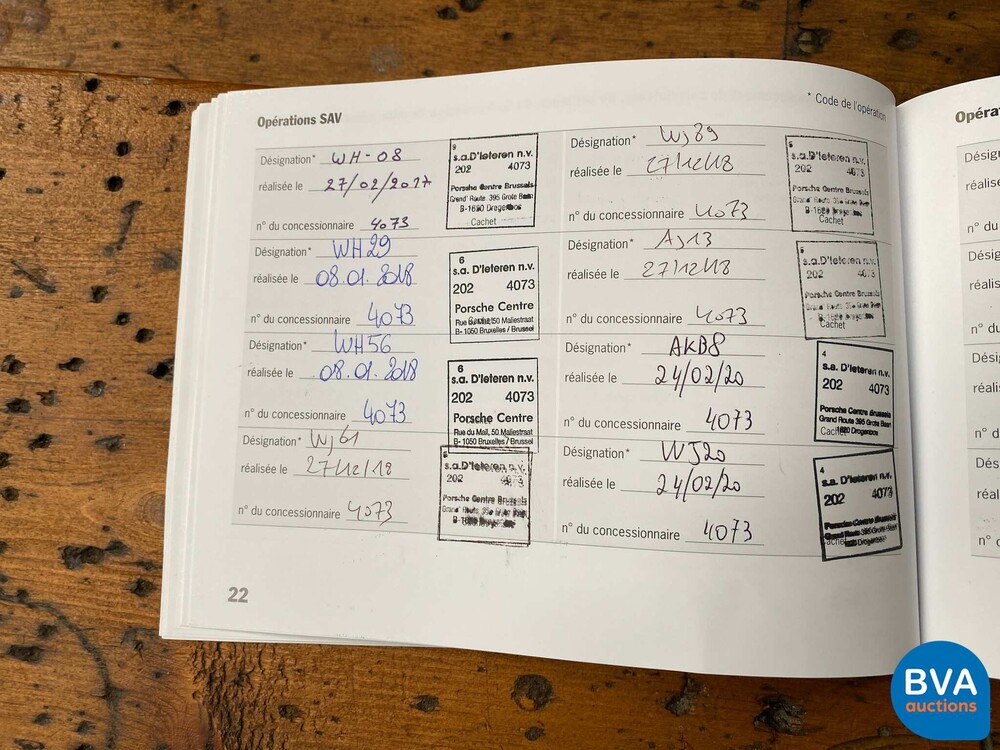 Opérations SAV
* Code de l'opération
Désignation* WH-08
réalisée le 27/02/2017
n° du concessionnaire 4073
s.a.D'Ieteren n.v.
202 4073
Porsche Centre Brussels
Grand' Route, 395 Grote Baan
B-1620 Drogenbos
Cachet
Désignation* WH29
réalisée le 08.01.2018
n° du concessionnaire 4073
6
s.a. D'Ieteren n.v.
202 4073
Porsche Centre
Rue du Mail, 50 Maliestraat
B-1050 Bruxelles / Brussel
Désignation* WH56
réalisée le 08.01.2018
n° du concessionnaire 4073
6
s.a. D'Ieteren n.v.
202 4073
Porsche Centre
Rue du Mail, 50 Maliestraat
B-1050 Bruxelles / Brussel
Désignation* WJ61
réalisée le 27/12/18
n° du concessionnaire 4073
s.a.D'Ieteren n.v.
202 4073
Porsche Centre Brussels
Désignation* WJ89
réalisée le 27/12/18
n° du concessionnaire 4073
s.a.D'Ieteren n.v.
202 4073
Porsche Centre Brussels
Grand' Route, 395 Grote Baan
B-1620 Drogenbos
Cachet
Désignation* AJ13
réalisée le 27/12/18
n° du concessionnaire 4073
s.a.D'Ieteren n.v.
202 4073
Porsche Centre Brussels
Cachet
Désignation* AKB8
réalisée le 24/02/20
n° du concessionnaire 4073
4
s.a. D'Ieteren n.v.
202 4073
Porsche Centre Brussels
Grand Route 395 Grote Baan
1620 Drogenbos
Désignation* WJ20
réalisée le 24/02/20
n° du concessionnaire 4073
4
s.a. D'Ieteren n.v.
202 4073
Porsche Centre Brussels
Grand Route 395 Grote Baan
1620 Drogenbos
22
Opéra
Désig
réalis
n° du
Désig
réalis
n° du
Dési
réali
n° d
Dés
réal
n° c
BVA
auctions